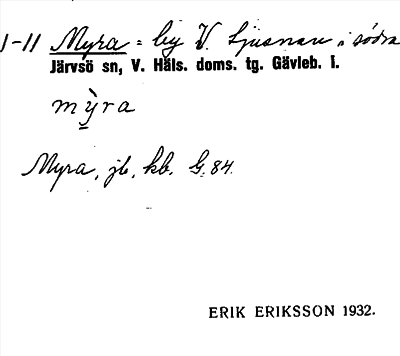 1-11 Myra = by V. Ljusnan i södra
Järvsö sn, V. Häls. doms. tg. Gävleb. l.
mỳra
Myra, jb, kb, G. 84.
ERIK ERIKSSON 1932.